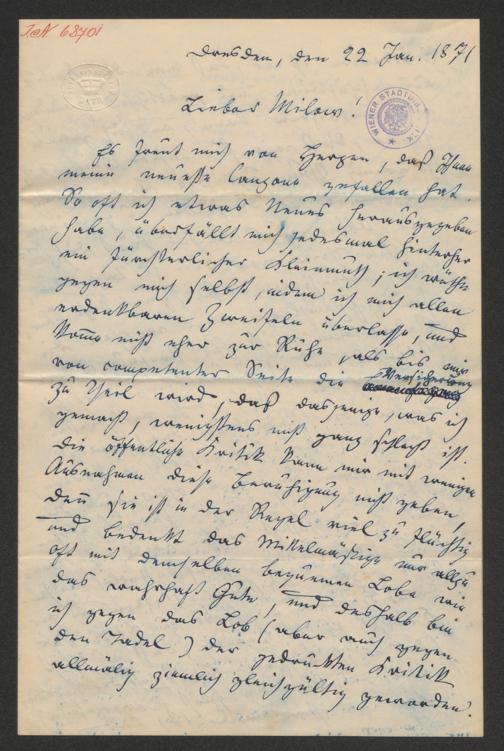 IaN 68701
Dresden, den 22 Jan. 1871
WIENER STADTBIBLIOTHEK
Lieber Milow!
Es freut mich von Herzen, daß Ihnen
meine neueste Canzone gefallen hat.
So oft ich etwas Neues herausgegeben
habe, überfällt mich jedesmal hinterher
ein fürchterlicher Kleinmuth; ich wüthe
gegen mich selbst, indem ich mich allen
erdenkbaren Zweifeln überlasse, und
komme nicht eher zur Ruhe, als bis mir
von competenter Seite die Versicherung
zu Theil wird, daß dasjenige, was ich
gemacht, wenigstens nicht ganz schlecht ist.
Die öffentliche Kritik kann mir mit wenigen
Ausnahmen diese Beruhigung nicht geben,
denn sie ist in der Regel viel zu flüchtig
und bedenkt das Mittelmäßige nur allzu
oft mit demselben bequemen Lobe wie
das wahrhaft Gute, und deshalb bin
ich gegen das Lob (aber auch gegen
den Tadel) der gedruckten Kritik
allmälig ziemlich gleichgültig geworden.